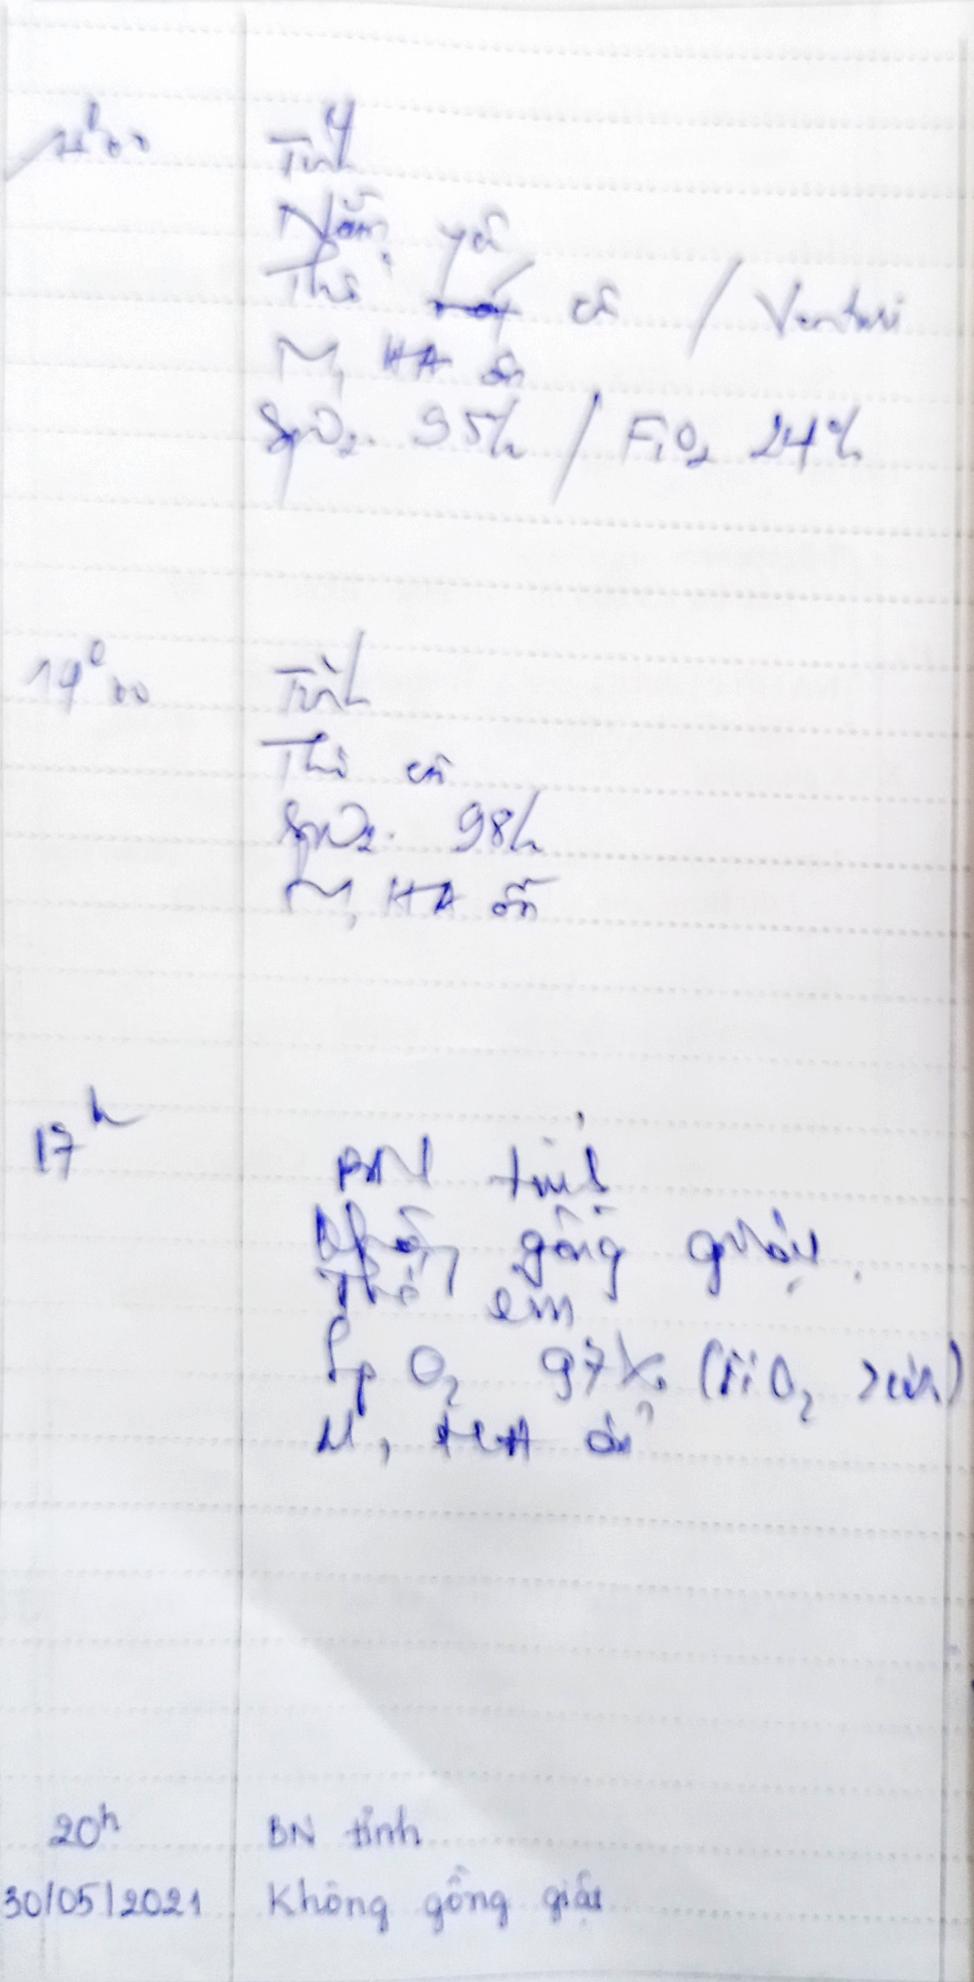 11h00 Tỉnh
Nằm yên
Thở êm / Venturi
M, HA ổn
SpO2: 95% / FiO2 24%
14h00 Tỉnh
Thở êm
SpO2: 98%
M, HA ổn
17h BN tỉnh
Không gồng giật.
Thở êm
SpO2 97% (FiO2 21%)
M, HA ổn
20h BN tỉnh
30/05/2021 Không gồng giật